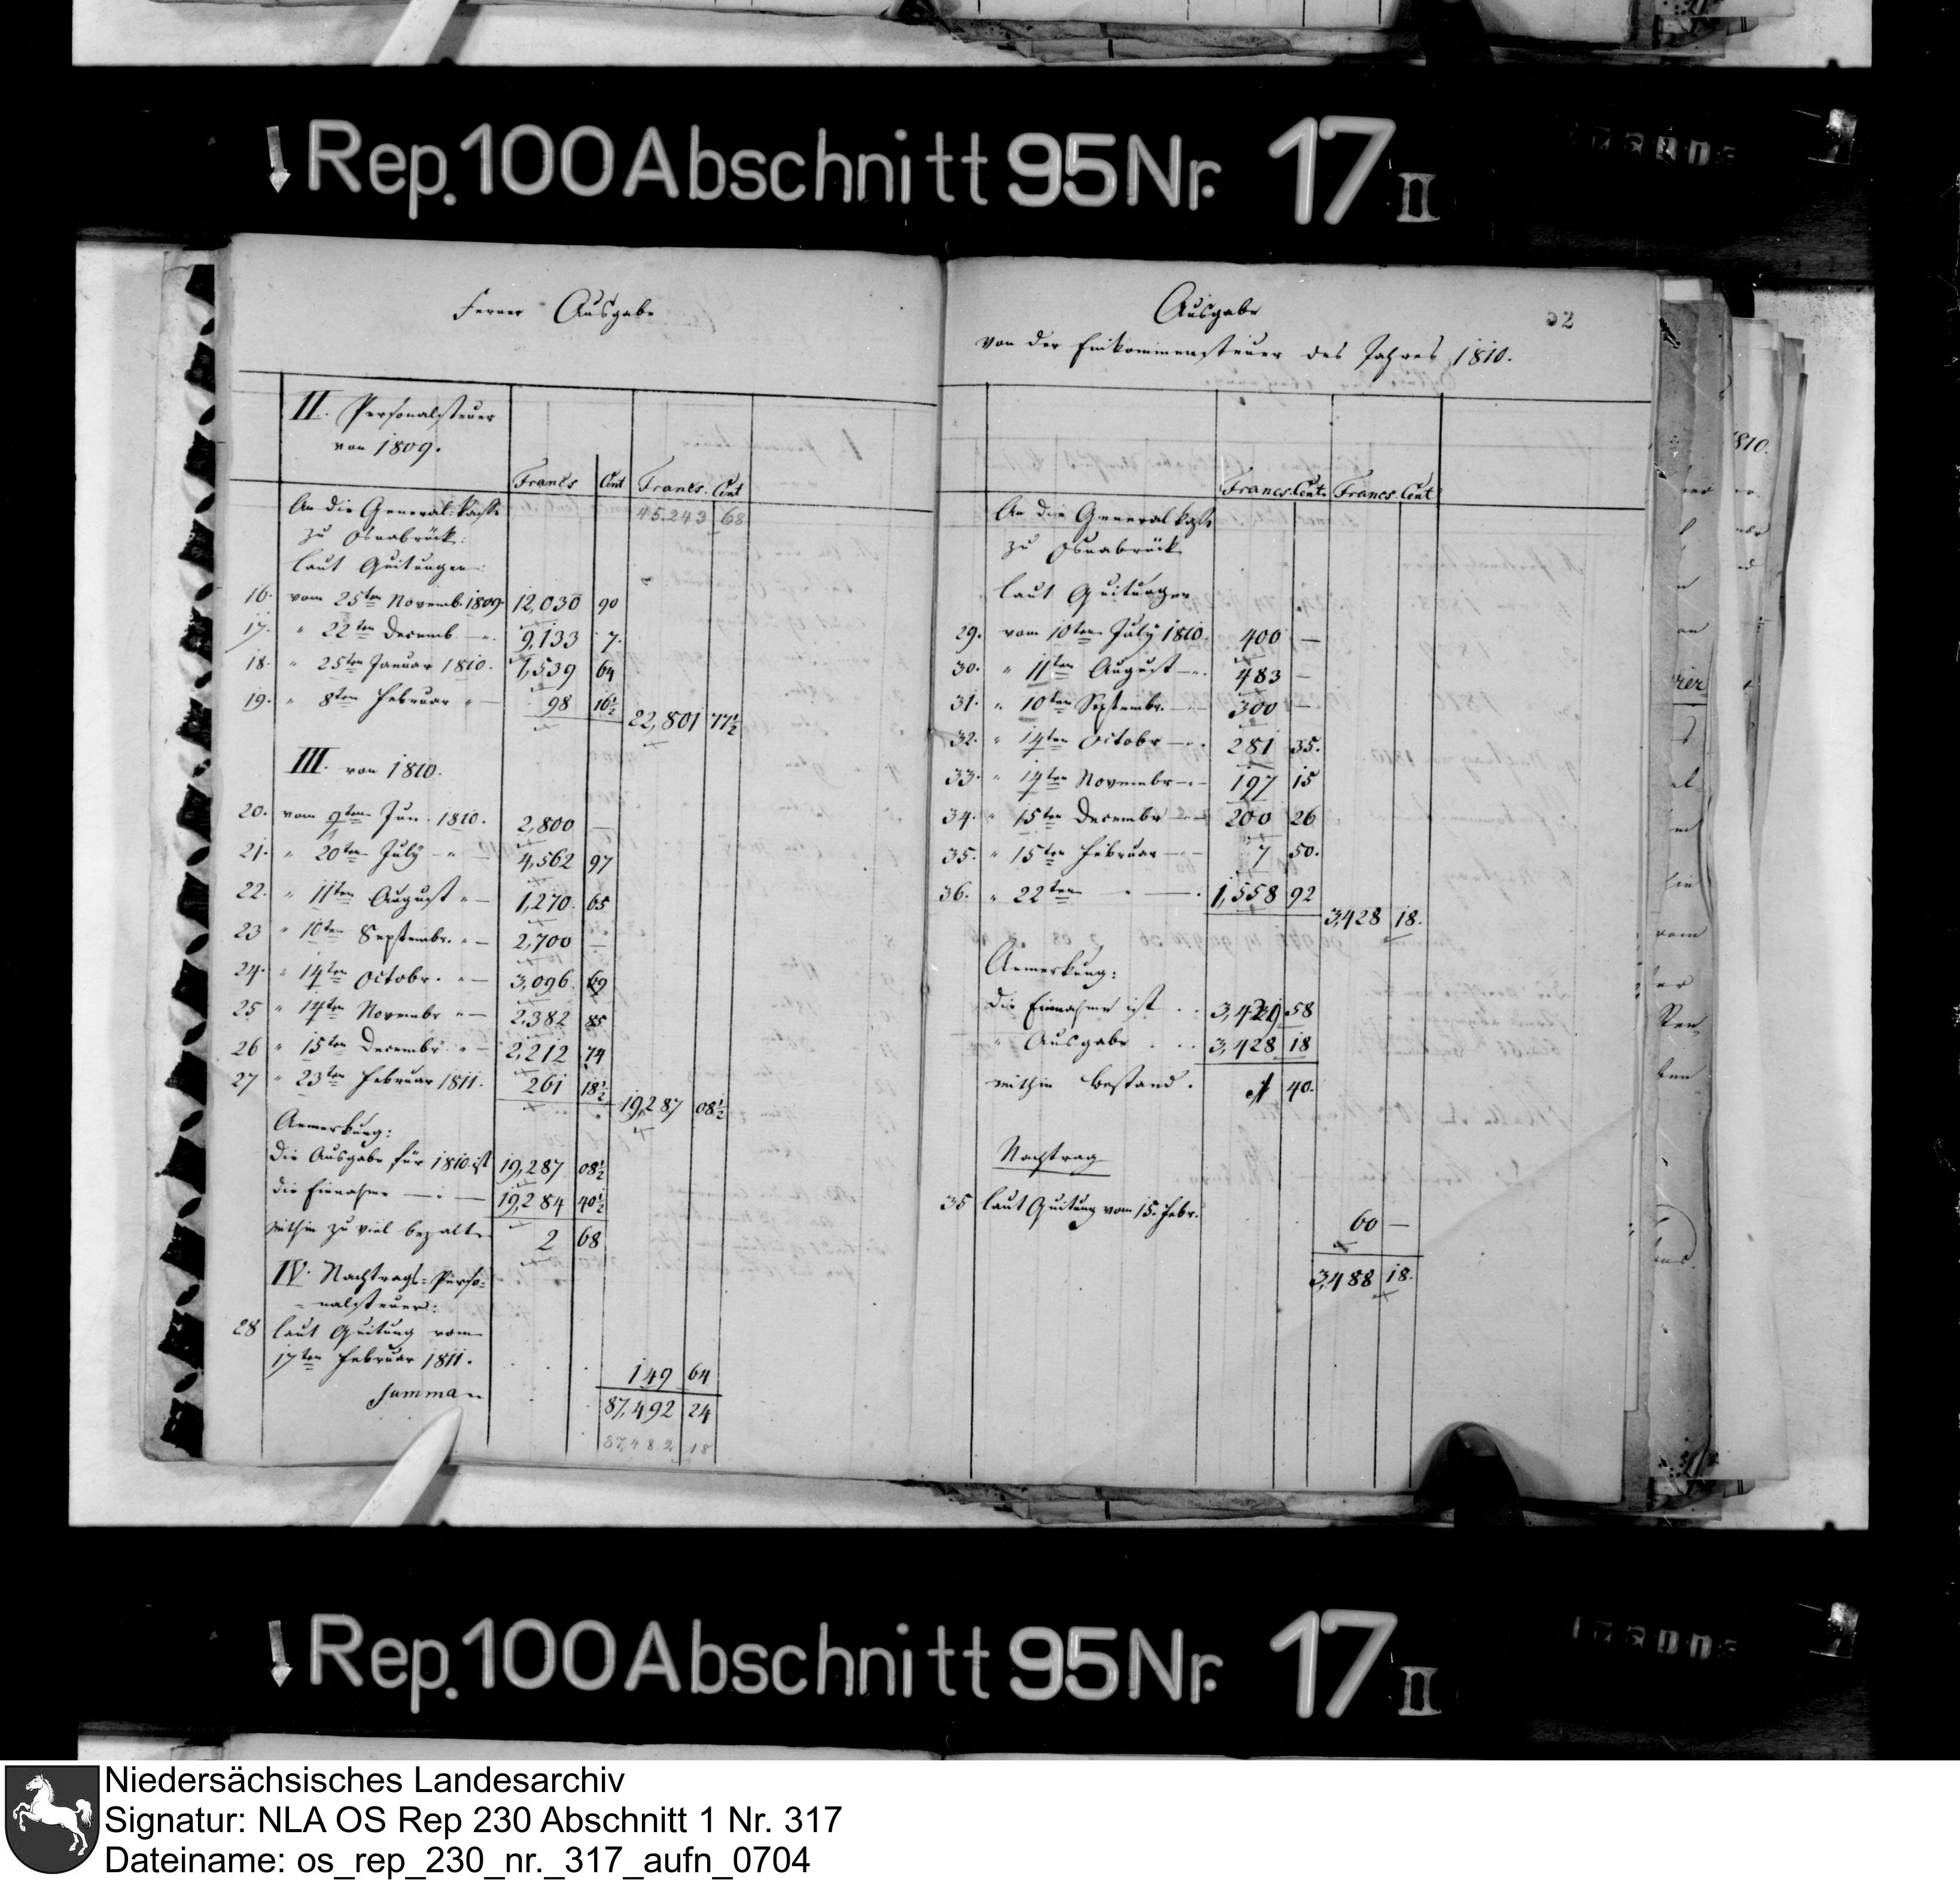 Rep. 100 Abschnitt 95 Nr. 17 II
Ferner Ausgabe
II. Personalsteuer
von 1809.
Francs Cent Francs. Cent
An die General-Kasse 45.243 68
zu Osnabrück:
laut Quitungen:
16. vom 25ten Novemb. 1809. 12,030 90
17. " 22ten Decemb. — 9,133 7.
18. " 25ten Januar 1810. 1,539 64
19. " 8ten Februar " — 98 16½ 22,801 77½
III. von 1810.
20. vom 9ten Jun. 1810. 2,800 —
21. " 20ten July — " — 4,562 97
22. " 11ten August " — 1,270. 65
23 " 10ten Septembr. " — 2,700 —
24. " 14ten Octobr. " — 3,096. 69
25 " 14ten Novembr " — 2,382 85
26 " 15ten Decembr. " — 2,212 74
27 " 23ten Februar 1811. 261 18½ 19,287 08½
Anmerkung:
die Ausgabe für 1810 ist 19,287 08½
die Einnahme — " — 19,284 40½
mithin zu viel bezalt 2 68
IV. Nachtrags-Perso-
nalsteuer:
28 laut Quitung vom
17ten Februar 1811. 149 64
Summa 87,492 24
87,482 18
Ausgabe 52
von der Einkommensteuer des Jahres 1810.
Francs. Cent. Francs. Cent
An die General Kasse
zu Osnabrück
laut Quitungen
29. vom 10ten July 1810. 400 —
30. " 11ten August — 483 —
31. " 10ten Septembr. — 300 —
32. " 14ten Octobr — 281 35.
33. " 14ten Novembr — 197 15
34. " 15ten Decembr — 200 26
35. " 15ten Februar — 7 50.
36. " 22ten " — 1,558 92
3,428 18.
Anmerkung:
die Einnahme ist . . 58
" Ausgabe . . 3,428 18
mithin Bestand . 1 40.
Nachtrag
35 laut Quitung vom 15. Febr.
60 —
3,488 18.
Rep. 100 Abschnitt 95 Nr. 17 II
Niedersächsisches Landesarchiv
Signatur: NLA OS Rep 230 Abschnitt 1 Nr. 317
Dateiname: os_rep_230_nr._317_aufn_0704